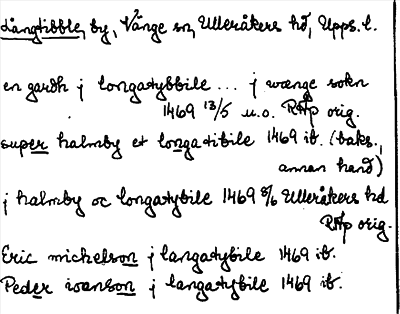 Långtibble, by, Vänge sn, Ulleråkers hd, Upps. l.
en gardh j longatybbile ... j wænge sokn
1469 13/5 u.o. RAp orig.
super halmby et longatibile 1469 ib. (baks.,
annan hand)
j halmby oc longatybile 1469 8/6 Ulleråkers hd
RAp orig.
Eric mickelson j langatybile 1469 ib.
Peder ioanson j langatybile 1469 ib.